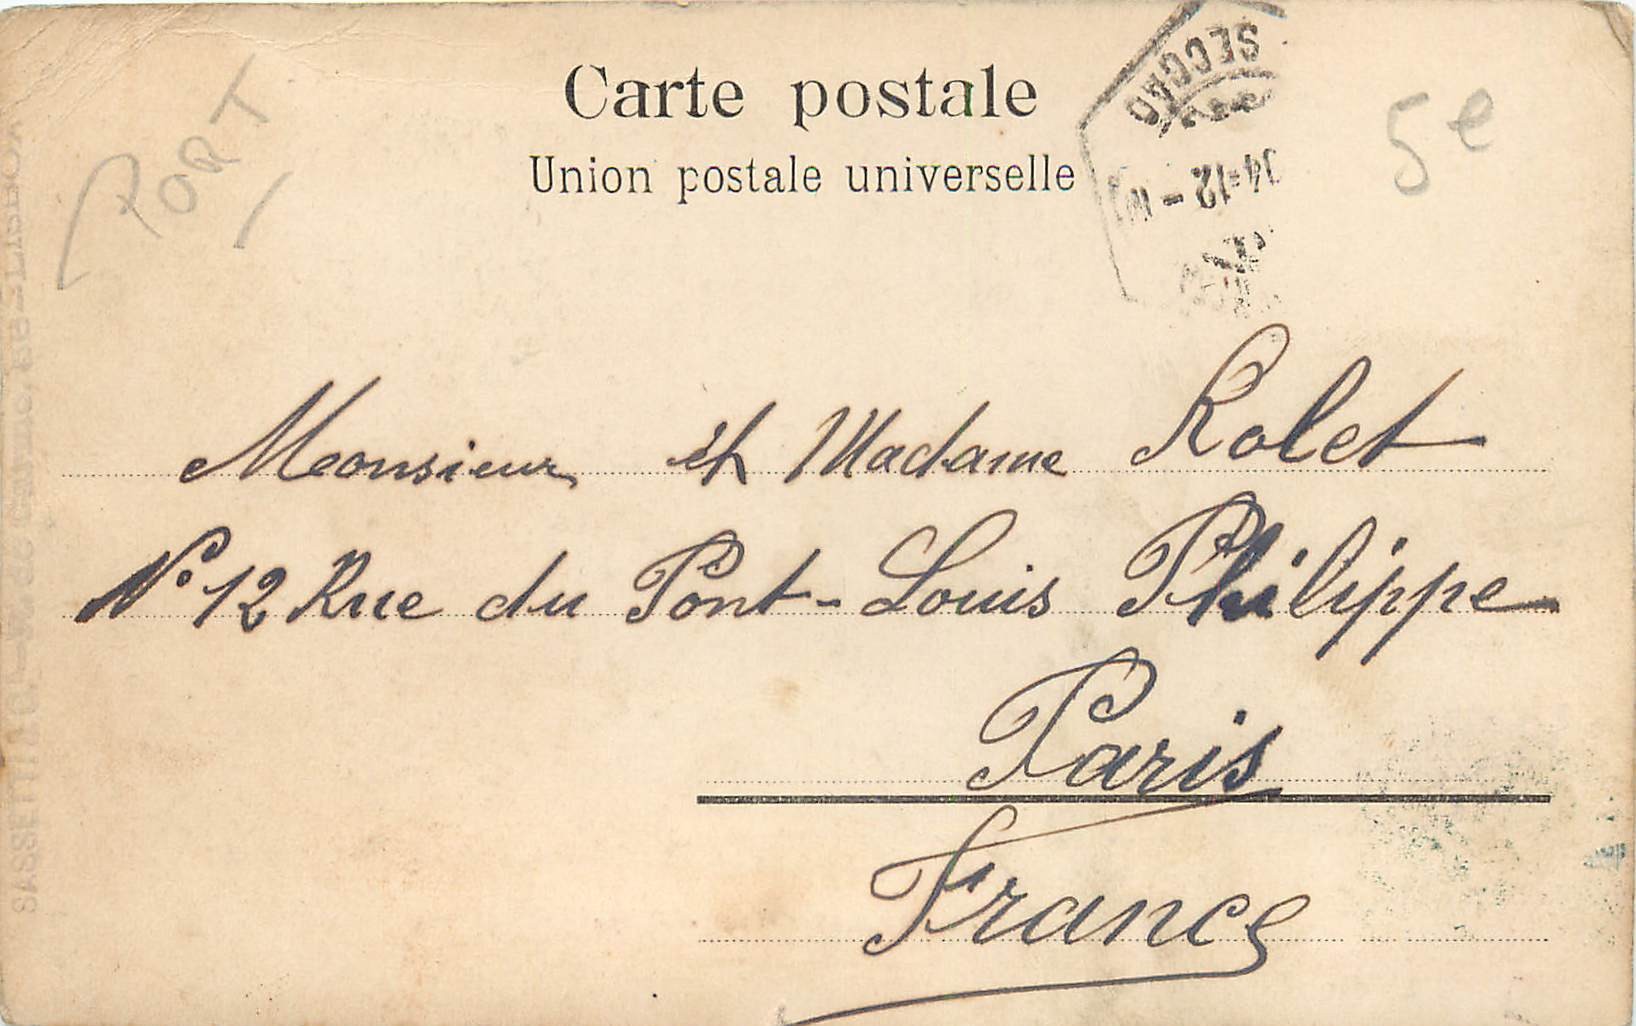 Carte postale
Union postale universelle
SECCAO
PORT
5e
Monsieur et Madame Rolet
N° 12 Rue du Pont-Louis Philippe
Paris
France